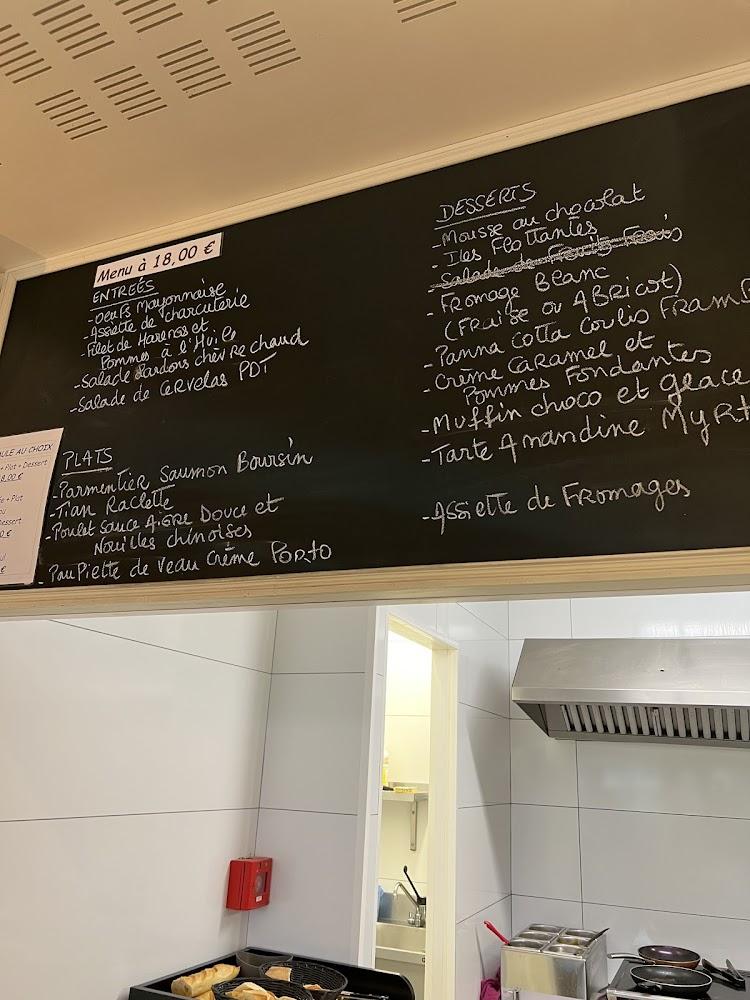 Menu à 18,00 €
ENTREES
- Oeufs Mayonnaise
- Assiette de charcuterie
- Filet de Harengs et
Pommes à l'Huile
- Salade Lardons chèvre chaud
- Salade de Cervelas PDT
PLATS
- Parmentier Saumon Boursin
- Tian Raclette
- Poulet sauce Aigre Douce et
Nouilles chinoises
- Paupiette de Veau Crème Porto
DESSERTS
- Mousse au chocolat
- Iles Flottantes
- Salade de Fruits Frais
- Fromage Blanc
(Fraise ou Abricot)
- Panna Cotta Coulis Framb
- Crème Caramel et
Pommes Fondantes
- Muffin choco et glace
- Tarte Amandine Myrt
- Assiette de Fromages
ULE AU CHOIX
+ Plat + Dessert
8,00 €
+ Plat
ou
Dessert
0 €
ul
€